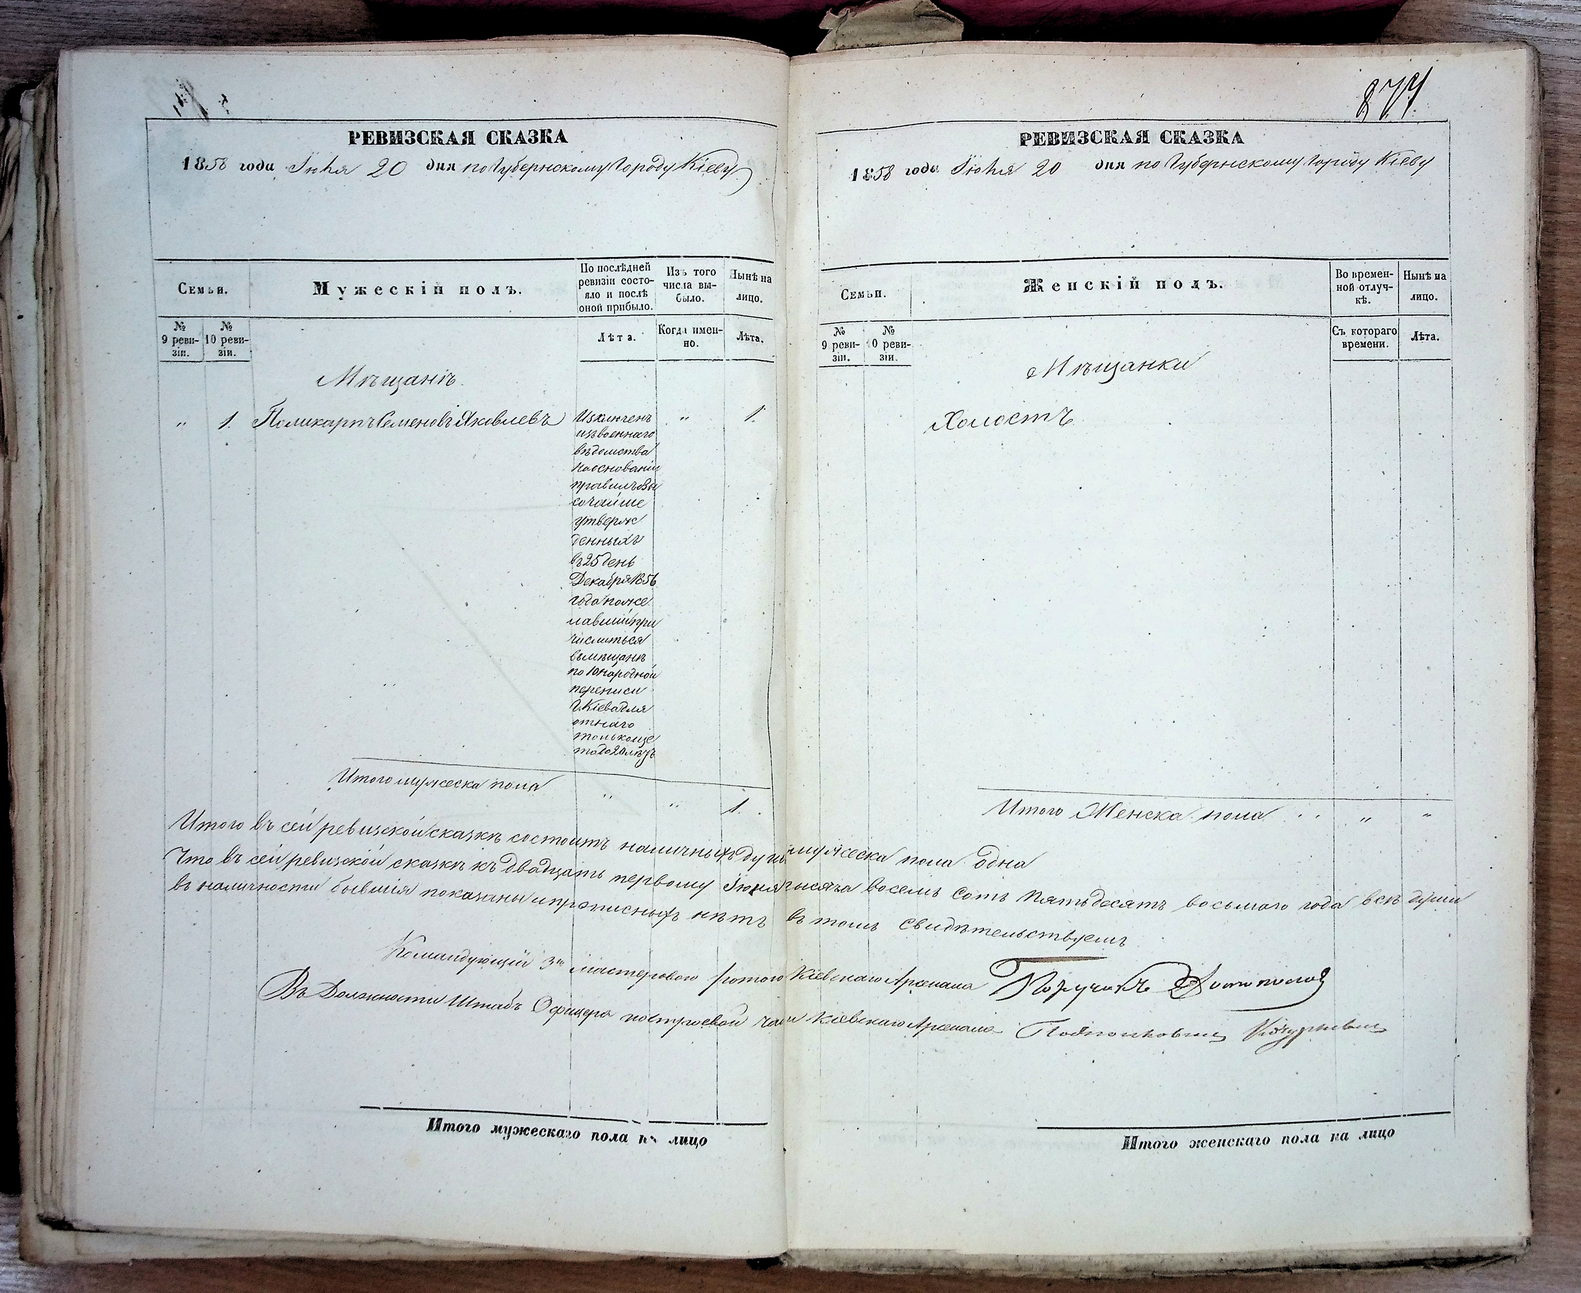 877
РЕВИЗСКАЯ СКАЗКА
1858 года Іюня 20 дня по Губернскому Городу Кіеву
Семьи.
Мужескій полъ.
По послѣдней ревизіи состояло и послѣ оной прибыло.
Изъ того числа выбыло.
Нынѣ на лицо.
№ 9 ревизіи.
№ 10 ревизіи.
Лѣта.
Когда именно.
Лѣта.
Мѣщанінъ
" 1. Поликарпъ Семеновъ Яковлевъ
Изключенъ
изъ военнаго
вѣдомства
на основаніи
правилъ Вы
сочайше
утверж
денныхъ
въ 25 день
Декабря 1856
года поже
лавшій при
числиться
въ мѣщане
по 10 народной
переписи
г. Кіева для
" 1.
Итого мужеска пола " " 1.
РЕВИЗСКАЯ СКАЗКА
1858 года Іюня 20 дня по Губернскому Городу Кіеву
Семьи.
Женскій полъ.
Во временной отлучкѣ.
Нынѣ на лицо.
№ 9 ревизіи.
№ 10 ревизіи.
Съ котораго времени.
Лѣта.
Мѣщанки
Холостъ
Итого Женска пола " " "
Итого въ сей ревизской сказкѣ состоитъ наличныхъ душъ мужеска пола одна
Что въ сей ревизской сказкѣ къ двадцать первому Іюня тысяча восемь сотъ пятьдесятъ восьмаго года всѣ души
въ наличности бывшія показаны и прописныхъ нѣтъ въ томъ свидѣтельствуемъ
Командующій 3й мастеровою ротою Кіевскаго Арсенала Поручикъ
Въ Должности Штабъ Офицера по строевой части Кіевскаго Арсенала Подполковникъ
Итого мужескаго пола на лицо
Итого женскаго пола на лицо